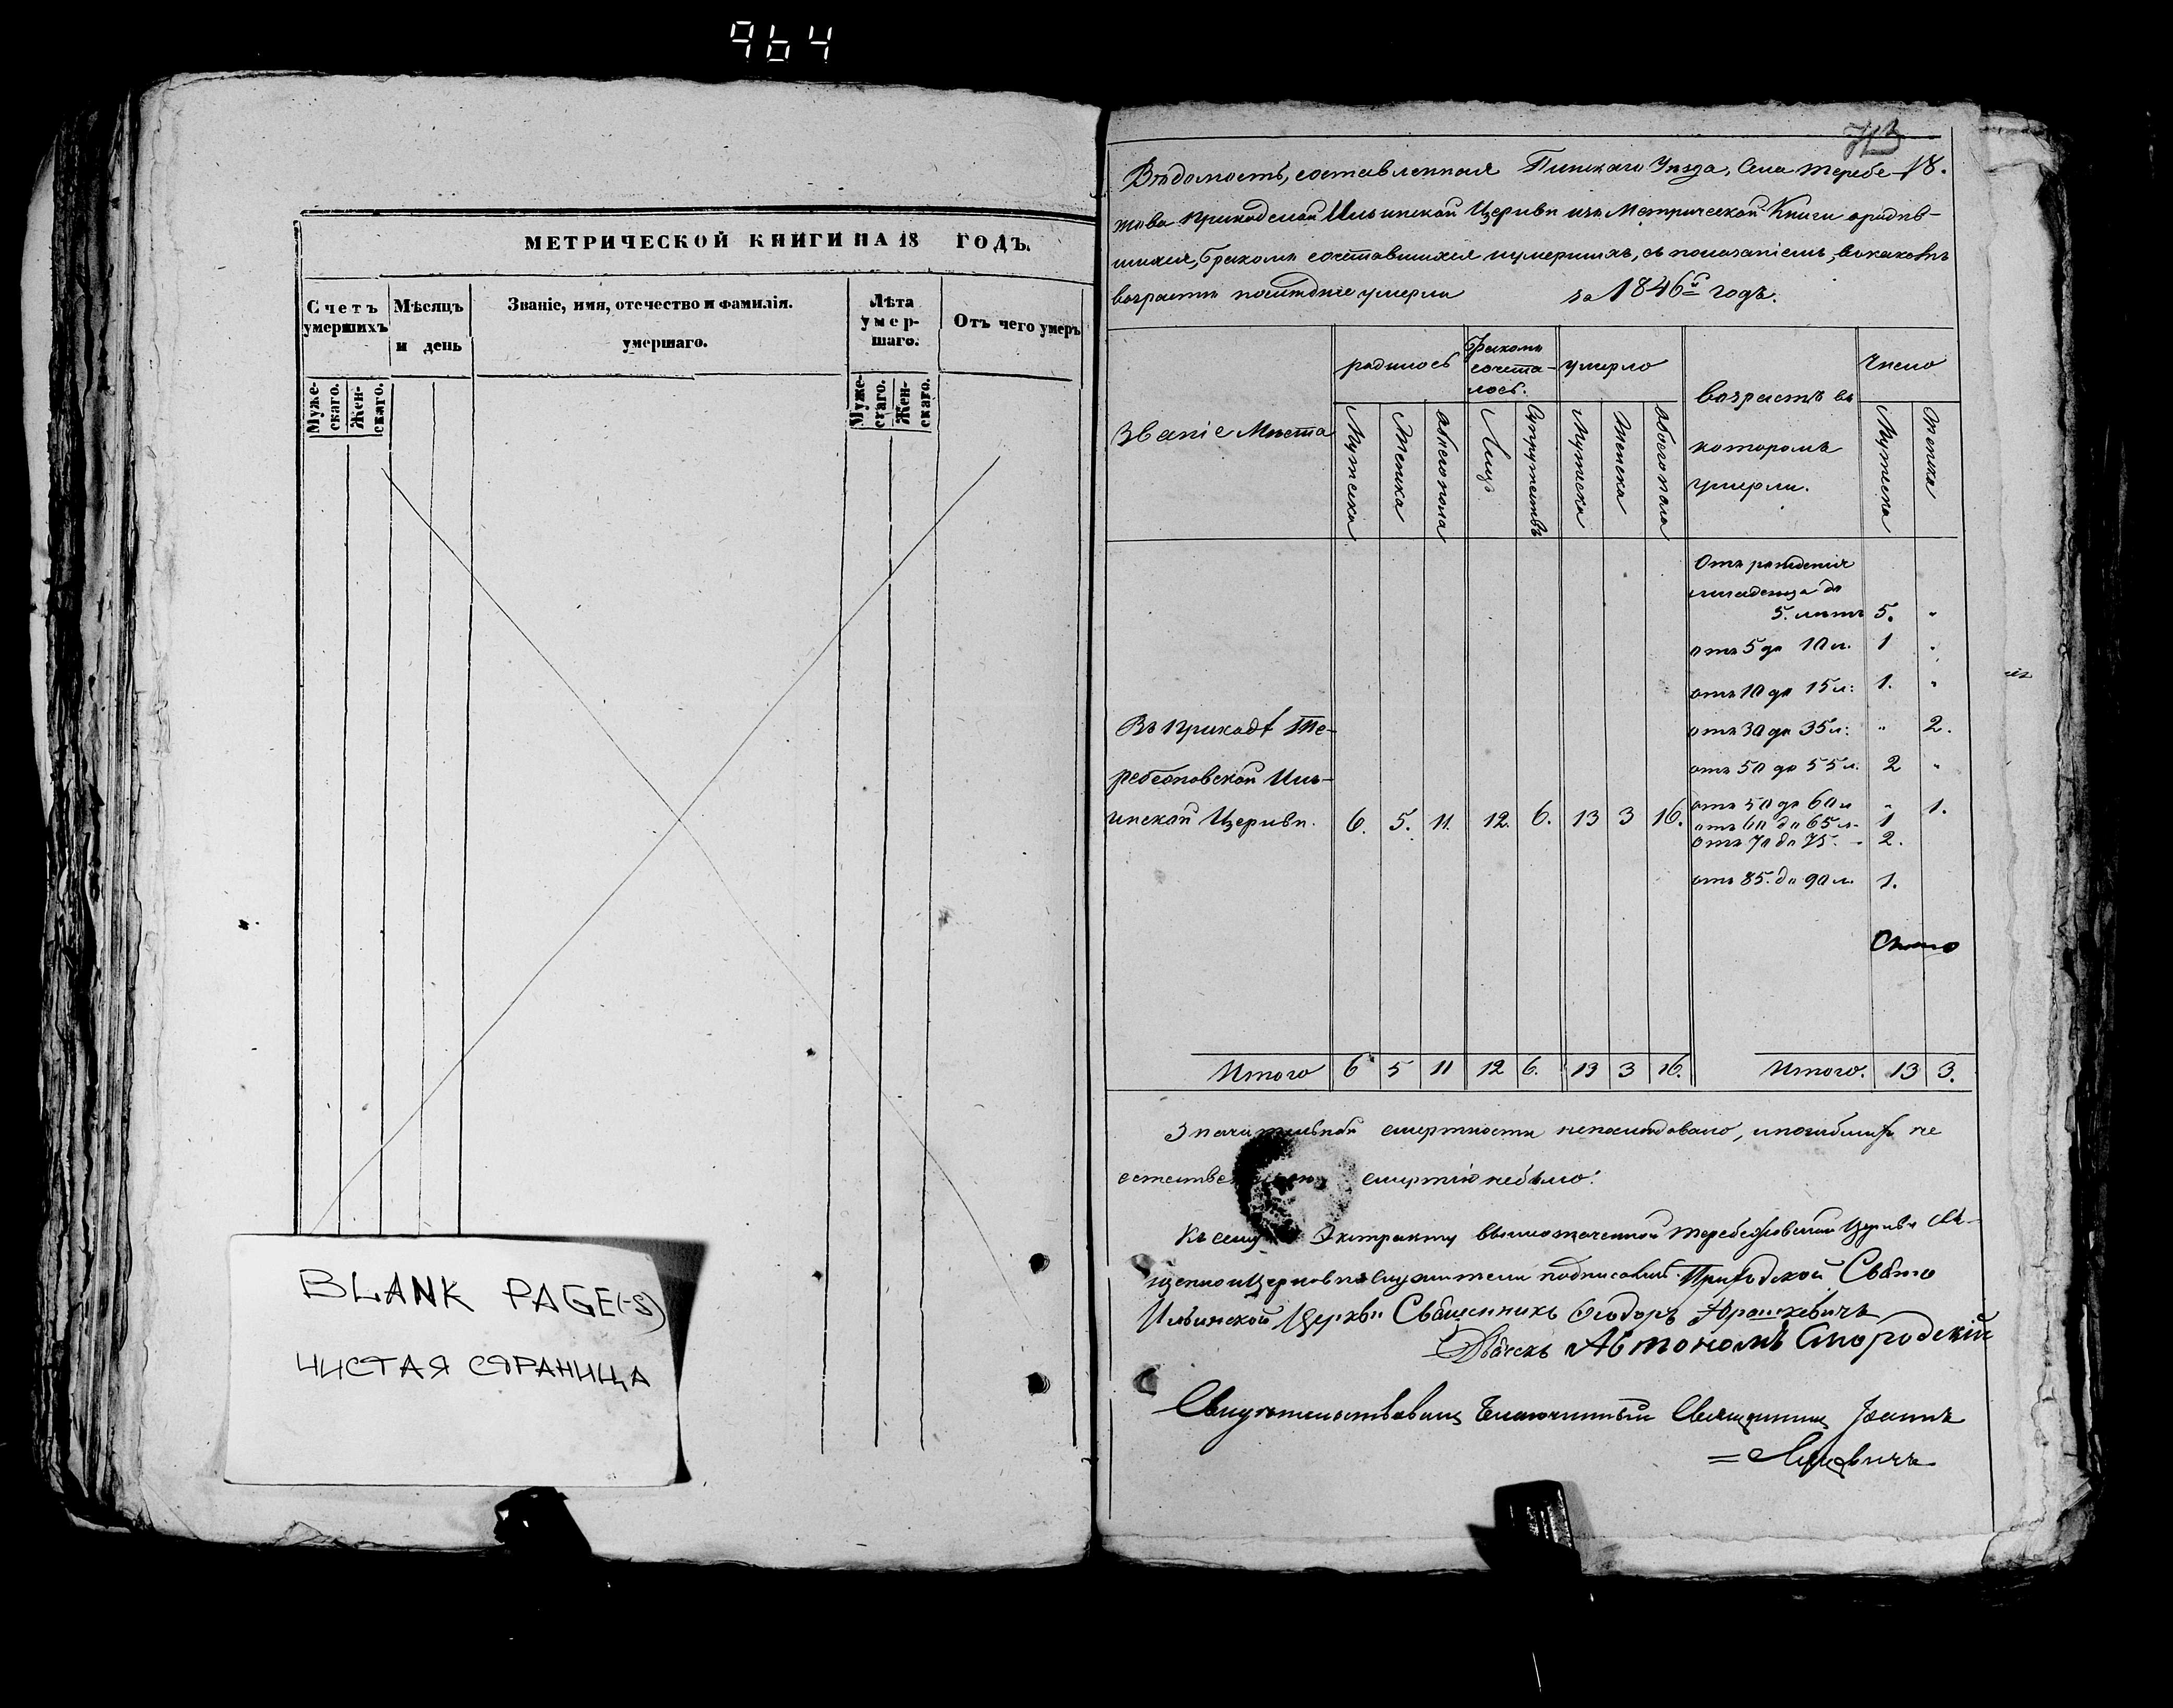 964
МЕТРИЧЕСКОЙ КНИГИ НА 18 ГОДЪ.
Счетъ умершихъ
Мѣсяцъ и день
Званіе, имя, отечество и фамилія. умершаго.
Лѣта умер-шаго.
Отъ чего умеръ
Муже-скаго.
Жен-скаго.
Муже-скаго.
Жен-скаго.
BLANK PAGE(-S)
ЧИСТАЯ СТРАНИЦА
Вѣдомость, составленная Пинскаго Уѣзда, Села Теребе-18.
това приходской Ильинской Церкви изъ Метрической Книги ородив-
шихся, бракомъ сочетавшихся иумершихъ, съ показаніемъ, вокаковъ
возрастѣ послѣдніе умерли за 1846й годъ.
Званіе Мѣста
родилось
бракомъ сочета-лось.
умерло
возрастъ въ которомъ умерли.
Число
Мужеска
Женска
обоего пола
Лицъ
Супружествъ
Мужеска
Женска
обоего пола
Мужеска
Женска
Отъ рожденія
младенца до
5. лѣтъ 5. "
отъ 5 до 10 л. 1 "
отъ 10 до 15 л: 1. "
отъ 30 до 35 л: " 2.
отъ 50 до 55 л. 2 "
отъ 50 до 60 л " 1.
отъ 60 до 65 л. 1
отъ 70 до 75. - 2.
отъ 85. до 90 л. 1.
Въ приходѣ Те-
ребеховской Иль-
инской Церкви. 6. 5. 11. 12. 6. 13 3 16.
Итого 6 5 11 12 6. 13 3 16. Итого. 13 3.
Значительной смертности непослѣдовало, ипогибшихъ не
естестве смертію небыло.
Къ сему Экстракту вышеозначенной Теребежовской Церкви Свя-
щенно и Церковно служители подписались: Приходской Свято
Ильинской Церкви Священникъ Ѳеодоръ Юрашкевичъ
Дьячекъ Автономъ Смородскій
Свидѣтельствовалъ Благочинный Священникъ Іоаннъ